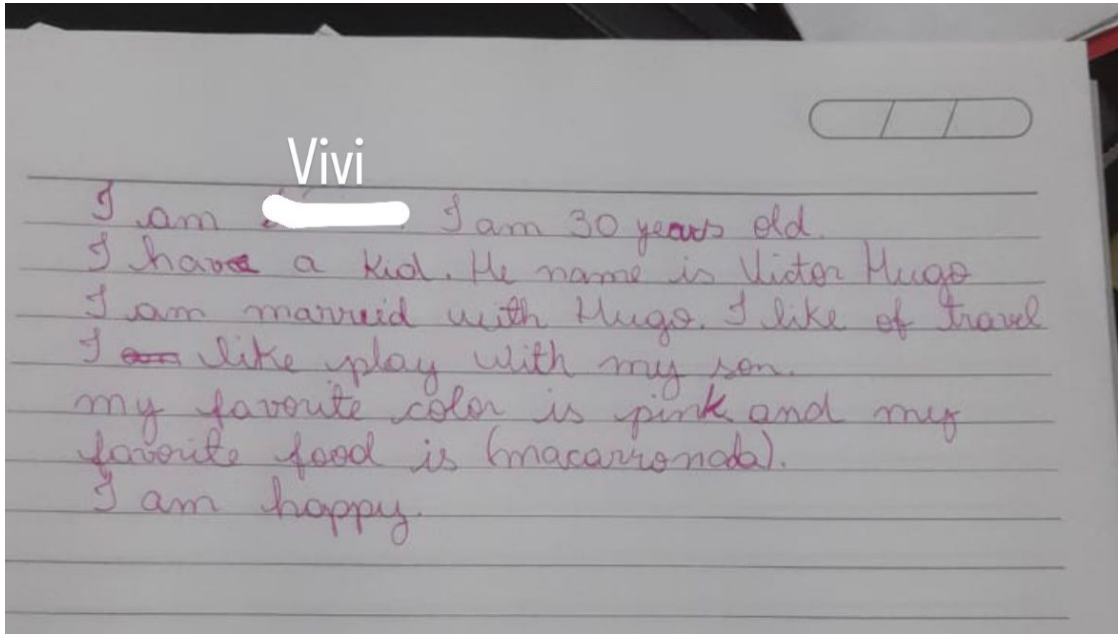 Vivi
I am I am 30 years old.
I have a kid. He name is Victor Hugo
I am marrueid with Hugo. I like of travel
I like play with my son.
my favorite color is pink and my
favorite food is (macarronada).
I am happy.